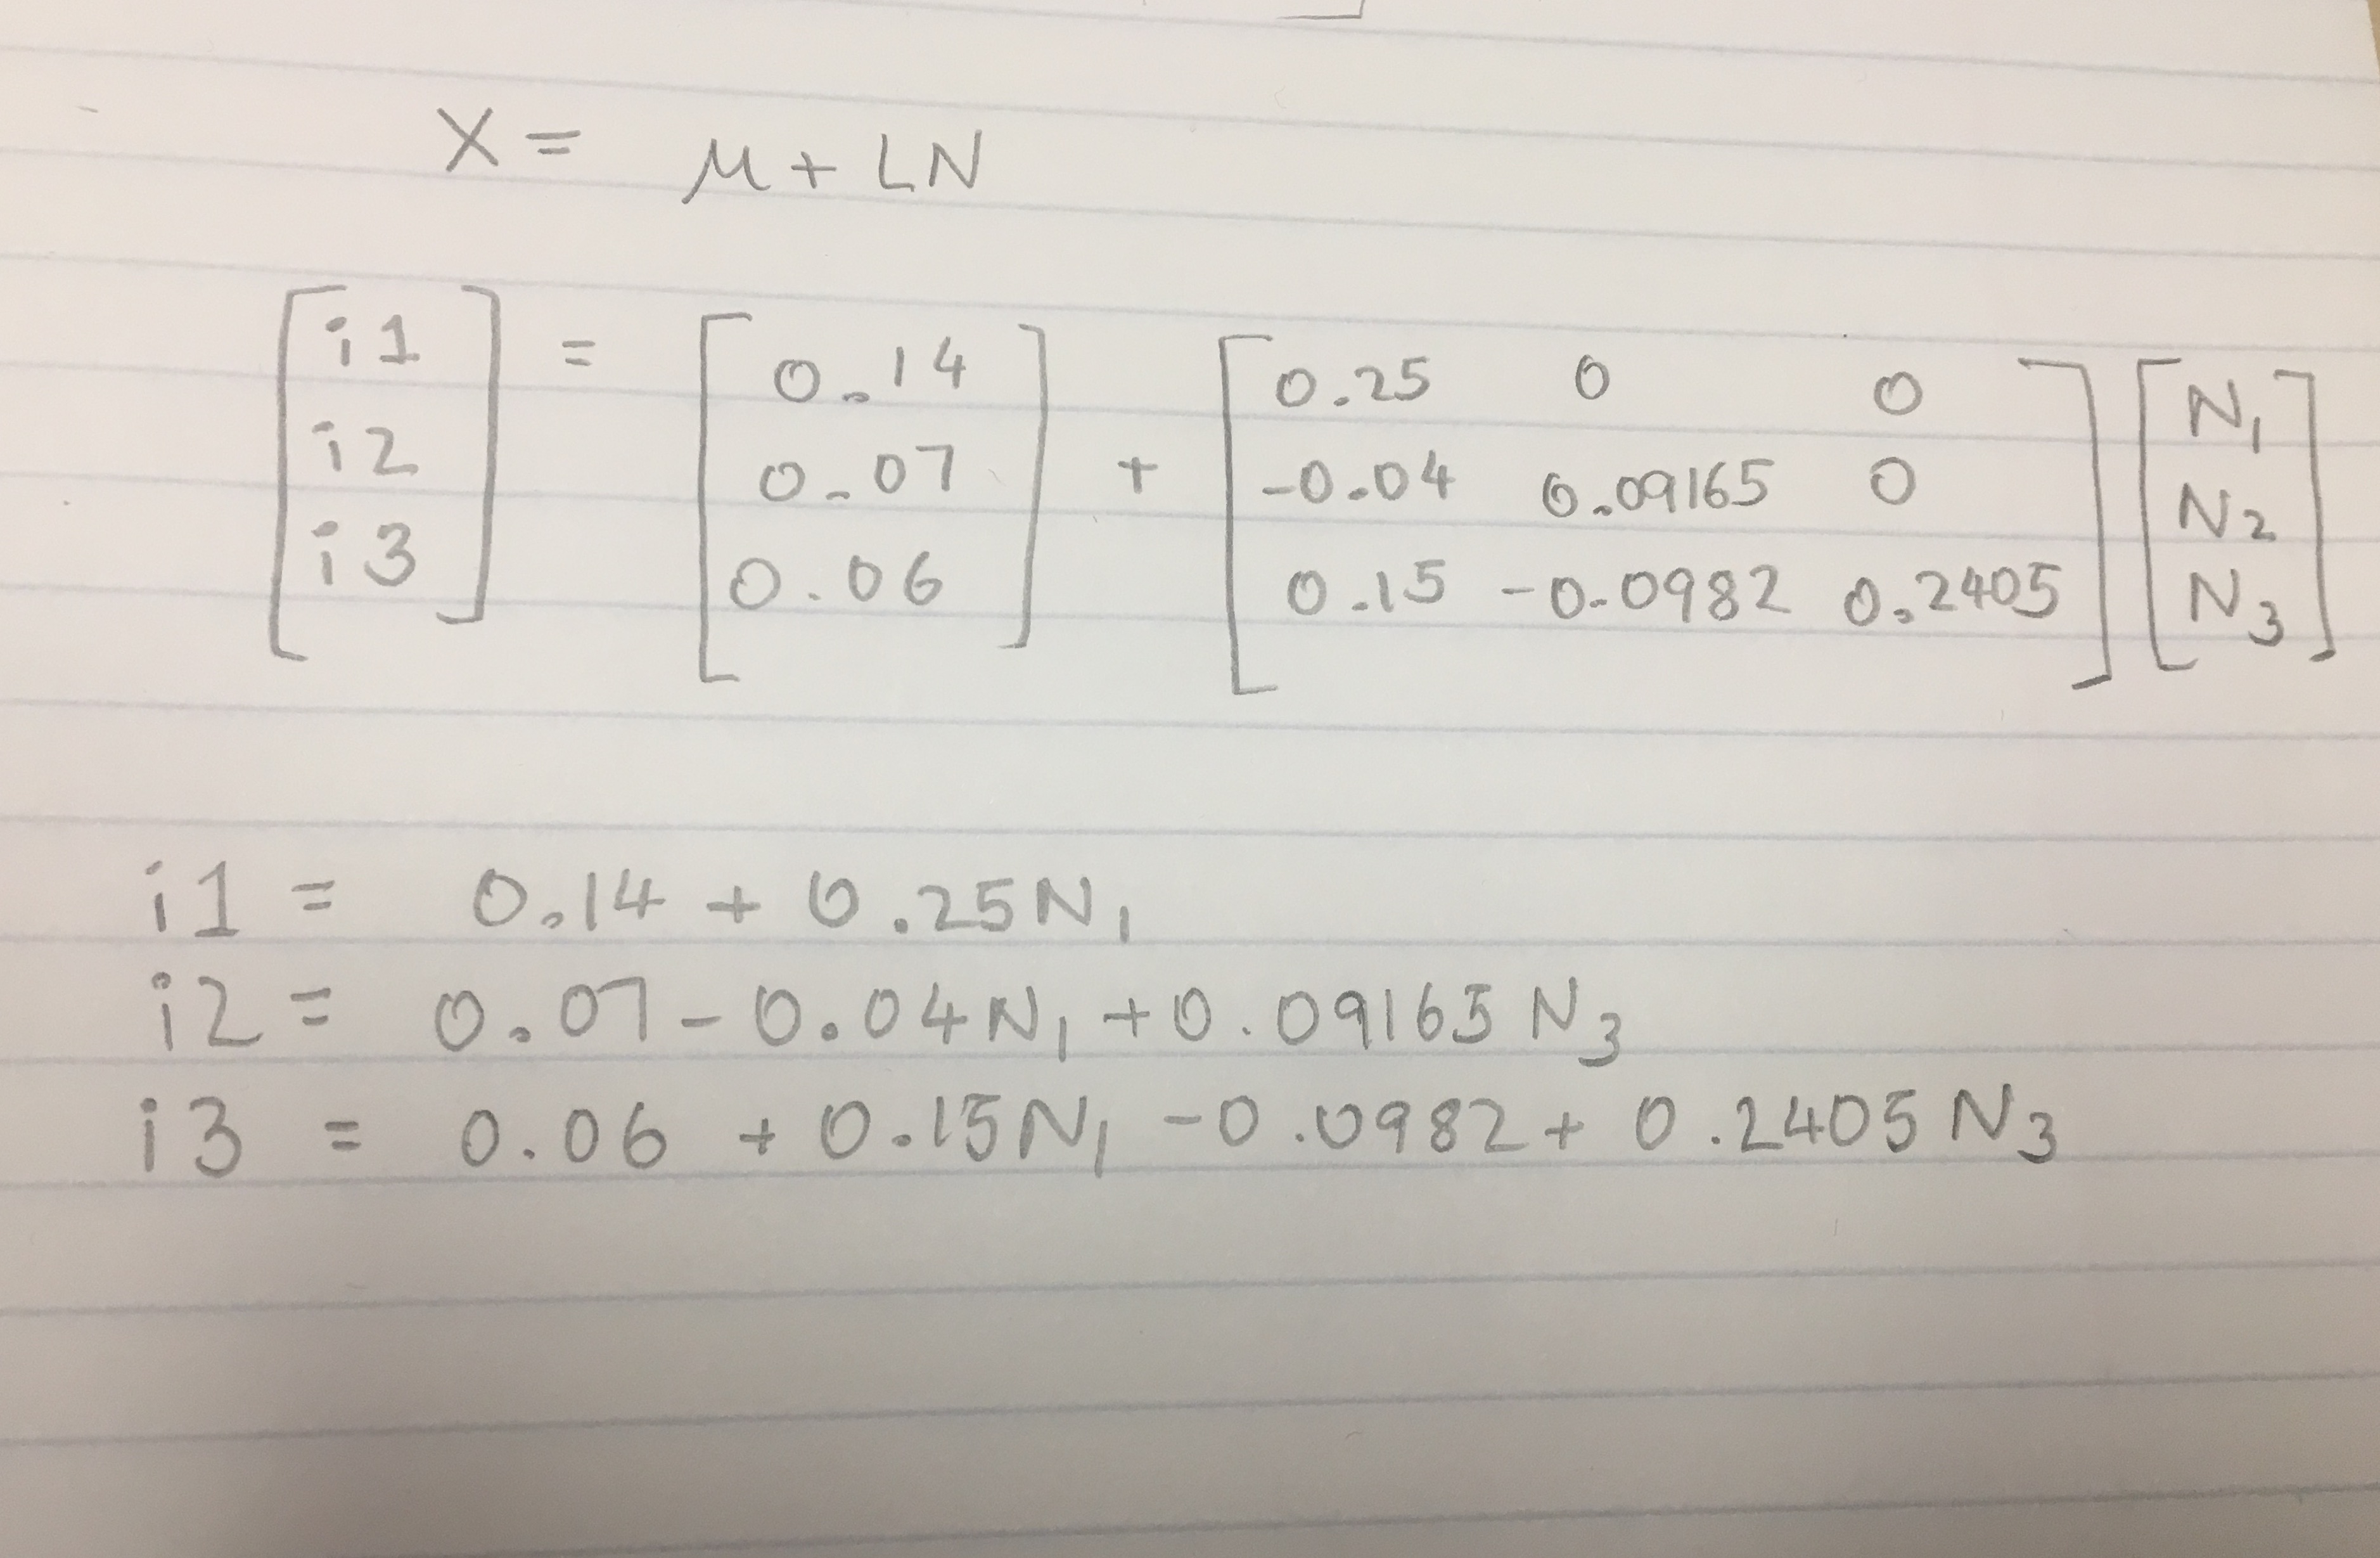 X = μ + LN
[i1 i2 i3] = [0.14 0.07 0.06] + [0.25 0 0 -0.04 0.09165 0 0.15 -0.0982 0.2405] [N₁ N₂ N₃]
i1 = 0.14 + 0.25N₁
i2 = 0.07 - 0.04N₁ + 0.09165 N₃
i3 = 0.06 + 0.15N₁ - 0.0982 + 0.2405 N₃